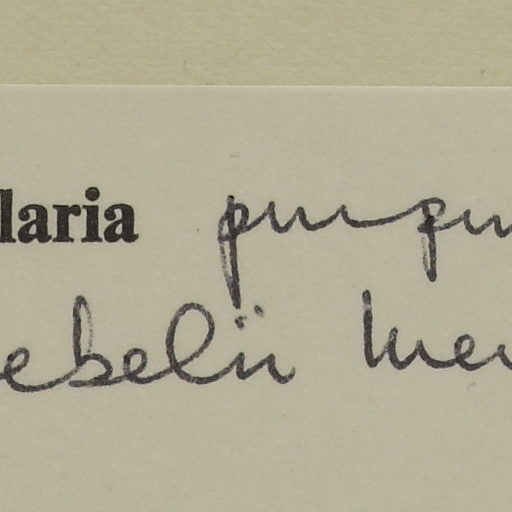 laria purpu
ebelii Mer